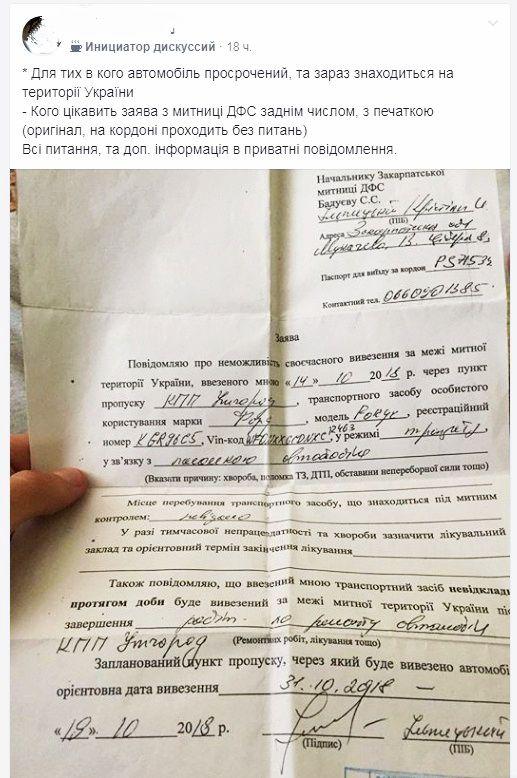 Инициатор дискуссий · 18 ч.
* Для тих в кого автомобіль просрочений, та зараз знаходиться на
території України
- Кого цікавить заява з митниці ДФС заднім числом, з печаткою
(оригінал, на кордоні проходить без питань)
Всі питання, та доп. інформація в приватні повідомлення.
Начальнику Закарпатської
митниці ДФС
Бадуєву С.С.
(ПІБ)
Адреса Закарпатська обл
Паспорт для виїзду за кордон
Контактний тел.
Заява
Повідомляю про неможливість своєчасного вивезення за межі митної
території України, ввезеного мною «14» 10 2018 р. через пункт
пропуску КПП Ужгород, транспортного засобу особистого
користування марки Форд, модель Фокус, реєстраційний
номер, Vin-код, у режимі транзиту,
у зв'язку з поломкою автомобіля
(Вказати причину: хвороба, поломка ТЗ, ДТП, обставини непереборної сили тощо)
Місце перебування транспортного засобу, що знаходиться під митним
контролем:
У разі тимчасової непрацездатності та хвороби зазначити лікувальний
заклад та орієнтовний термін закінчення лікування
Також повідомляю, що ввезений мною транспортний засіб невідклад
протягом доби буде вивезений за межі митної території України піс
завершення робіт по ремонту автомобіля
КПП Ужгород (Ремонтних робіт, лікування тощо)
Запланований пункт пропуску, через який буде вивезено автомобі
орієнтовна дата вивезення 31.10.2018
«19». 10 2018 р.
(Підпис) (ПІБ)